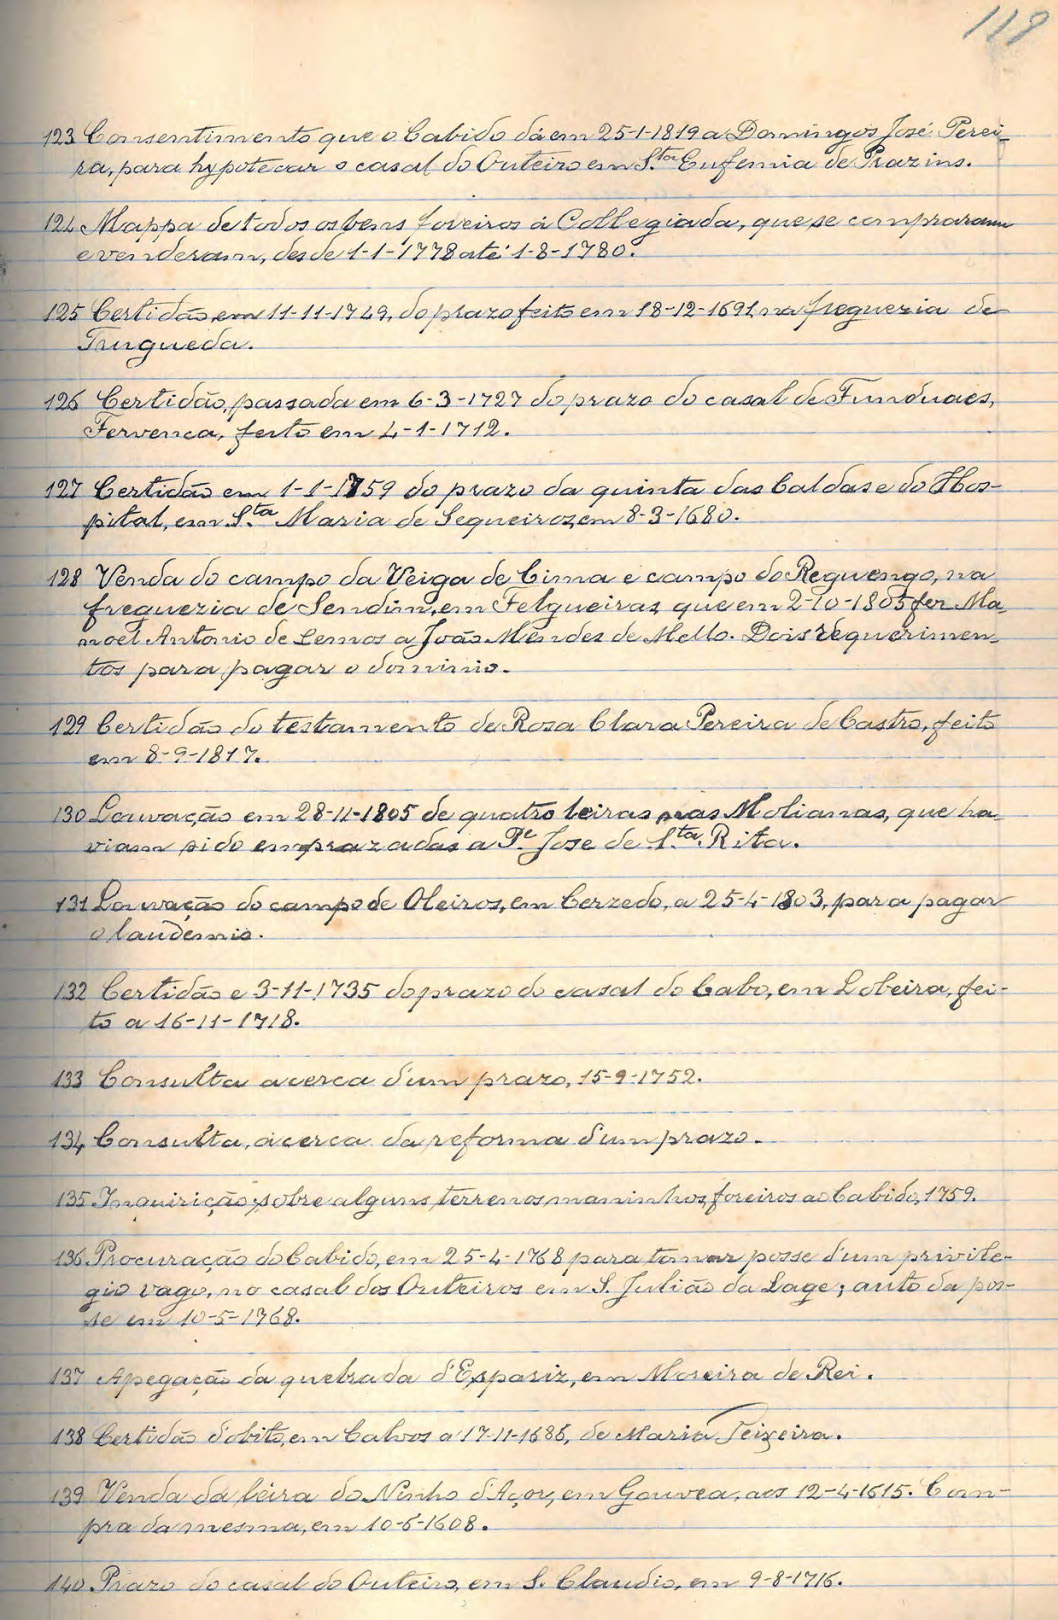 118
123 Consentimento que o Cabido dá em 25-1-1819 a Domingos José Perei-
ra, para hypotecar o casal do Outeiro em S.ta Eufemia de Prazins.
124 Mappa de todos os bens foreiros á Collegiada, que se compraram
e venderam, desde 1-1-1778 até 1-8-1780.
125 Certidão, em 11-11-1749, do prazo feito em 18-12-1691, na freguezia de
Trugueda.
126 Certidão, passada em 6-3-1727 do prazo do casal de Funduaes,
Fervença, feito em 4-1-1712.
127 Certidão em 1-1-1759 do prazo da quinta das Caldas e do Hos-
pital, em S.ta Maria de Sequeiros, em 8-3-1680.
128 Venda do campo da Veiga de Cima e campo do Reguengo, na
freguezia de Sendim, em Felgueiras, que em 2-10-1805 fez Ma-
noel Antonio de Lemos a João Mendes de Mello. Dois requerimen-
tos para pagar o dominio.
129 Certidão do testamento de Rosa Clara Pereira de Castro, feito
em 8-9-1817.
130 Louvação em 28-11-1805 de quatro leiras nas Molianas, que ha-
viam sido emprazadas a P.e Jose de S.ta Rita.
131 Louvação do campo de Oleiros, em Cerzedo, a 25-4-1803, para pagar
o laudemio.
132 Certidão e 3-11-1735 do prazo do casal do Cabo, em Lobeira, fei-
to a 16-11-1718.
133 Consulta acerca d'um prazo, 15-9-1752.
134 Consulta, acerca da reforma d'um prazo.
135 Inquirição sobre alguns terrenos maninhos, foreiros ao Cabido, 1759.
136 Procuração do Cabido, em 25-4-1768 para tomar posse d'um privile-
gio vago, no casal dos Outeiros em S. Julião da Lage; auto da pos-
se em 10-5-1768.
137 Apegação da quebrada d'Espariz, em Moreira de Rei.
138 Certidão d'obito, em Calvos a 17-11-1686, de Maria Teixeira.
139 Venda da leira do Ninho d'Açor, em Gouvea, aos 12-4-1615. Com-
pra da mesma, em 10-6-1608.
140 Prazo do casal do Outeiro, em S. Claudio, em 9-8-1716.